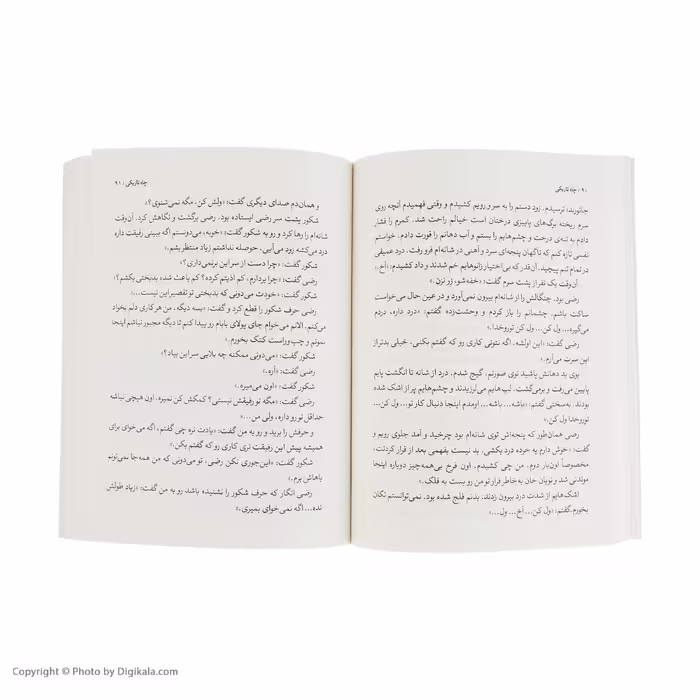 ۹۰ / چاه تاریکی
جانورند؛ ترسیدم. زود دستم را به سر و رویم کشیدم و وقتی فهمیدم آنچه روی
سرم ریخته برگ‌های پاییزی درختان است خیالم راحت شد. کمرم را فشار
دادم به تنه‌ی درخت و چشم‌هایم را بستم و آب دهانم را قورت دادم. خواستم
نفسی تازه کنم که ناگهان پنجه‌ای سرد و آهنی در شانه‌ام فرو رفت. درد عمیقی
در تمام تنم پیچید، آن‌قدر که بی‌اختیار زانوهایم خم شدند و داد کشیدم: «آخ.»
آن‌وقت یک نفر از پشت سرم گفت: «خفه‌شو، زر نزن.»
رضی بود. چنگالش را از شانه‌ام بیرون نمی‌آورد و در عین حال می‌خواست
ساکت باشم. چشمانم را باز کردم و وحشت‌زده گفتم: «درد داره، دردم
می‌گیره... ول کن... ول کن توروخدا.»
رضی گفت: «این اولشه. اگه نتونی کاری رو که گفتم بکنی، خیلی بدتر از
این سرت می‌آرم.»
بوی بد دهانش پاشید توی صورتم. گیج شدم. درد از شانه تا انگشت پایم
پایین می‌رفت و برمی‌گشت. لب‌هایم می‌لرزیدند و چشم‌هایم پر از اشک شده
بودند. به‌سختی گفتم: «باشه... باشه... اومدم اینجا دنبال کار تو... ول کن...
توروخدا ول کن.»
رضی همان‌طور که پنجه‌اش توی شانه‌ام بود چرخید و آمد جلوی رویم و
گفت: «خوش دارم یه خرده درد بکشی. بد نیست بفهمی بعد از فرار کردنت،
مخصوصاً اون‌بار دوم، من چی کشیدم. اون فرخ بی‌همه‌چیز دوباره اینجا
موندنی شد و نویان خان به‌خاطر فرار تو من رو بست به فلک.»
اشک‌هایم از شدت درد بیرون زدند. بدنم فلج شده بود. نمی‌توانستم تکان
بخورم. گفتم: «ول کن... آخ... ول...»
چاه تاریکی / ۹۱
و همان‌دم صدای دیگری گفت: «ولش کن. مگه نمی‌شنوی؟»
شکور پشت سر رضی ایستاده بود. رضی برگشت و نگاهش کرد. آن‌وقت
شانه‌ام را رها کرد و رو به شکور گفت: «خوبه، می‌دونستم اگه ببینی رفیقت داره
درد می‌کشه زود می‌آیی. حوصله نداشتم زیاد منتظر بشم.»
شکور گفت: «چرا دست از سر این برنمی‌داری؟»
رضی گفت: «چرا بردارم، کم اذیتم کرده؟ کم باعث شده بدبختی بکشم؟»
شکور گفت: «خودت می‌دونی که بدبختی تو تقصیر این نیست...»
رضی حرف شکور را قطع کرد و گفت: «بسه دیگه. من هر کاری دلم بخواد
می‌کنم. الانم می‌خوام جای پولای بابام رو پیدا کنم تا دیگه مجبور نباشم اینجا
بمونم و چپ‌وراست کتک بخورم.»
شکور گفت: «می‌دونی ممکنه چه بلایی سر این بیاد؟»
رضی گفت: «آره.»
شکور گفت: «اون می‌میره.»
رضی گفت: «مگه تو رفیقش نیستی؟ کمکش کن نمیره. اون هیچی نباشه
حداقل تو رو داره، ولی من...»
و حرفش را برید و رو به من گفت: «یادت نره چی گفتم، اگه می‌خوای برای
همیشه پیش این رفیقت نری کاری رو که گفتم بکن.»
شکور گفت: «این‌جوری نکن رضی. تو می‌دونی که من همه‌جا نمی‌تونم
باهاش برم.»
رضی انگار که حرف شکور را نشنیده باشد رو به من گفت: «زیاد طولش
نده... اگه نمی‌خوای بمیری.»
Copyright © Photo by Digikala.com